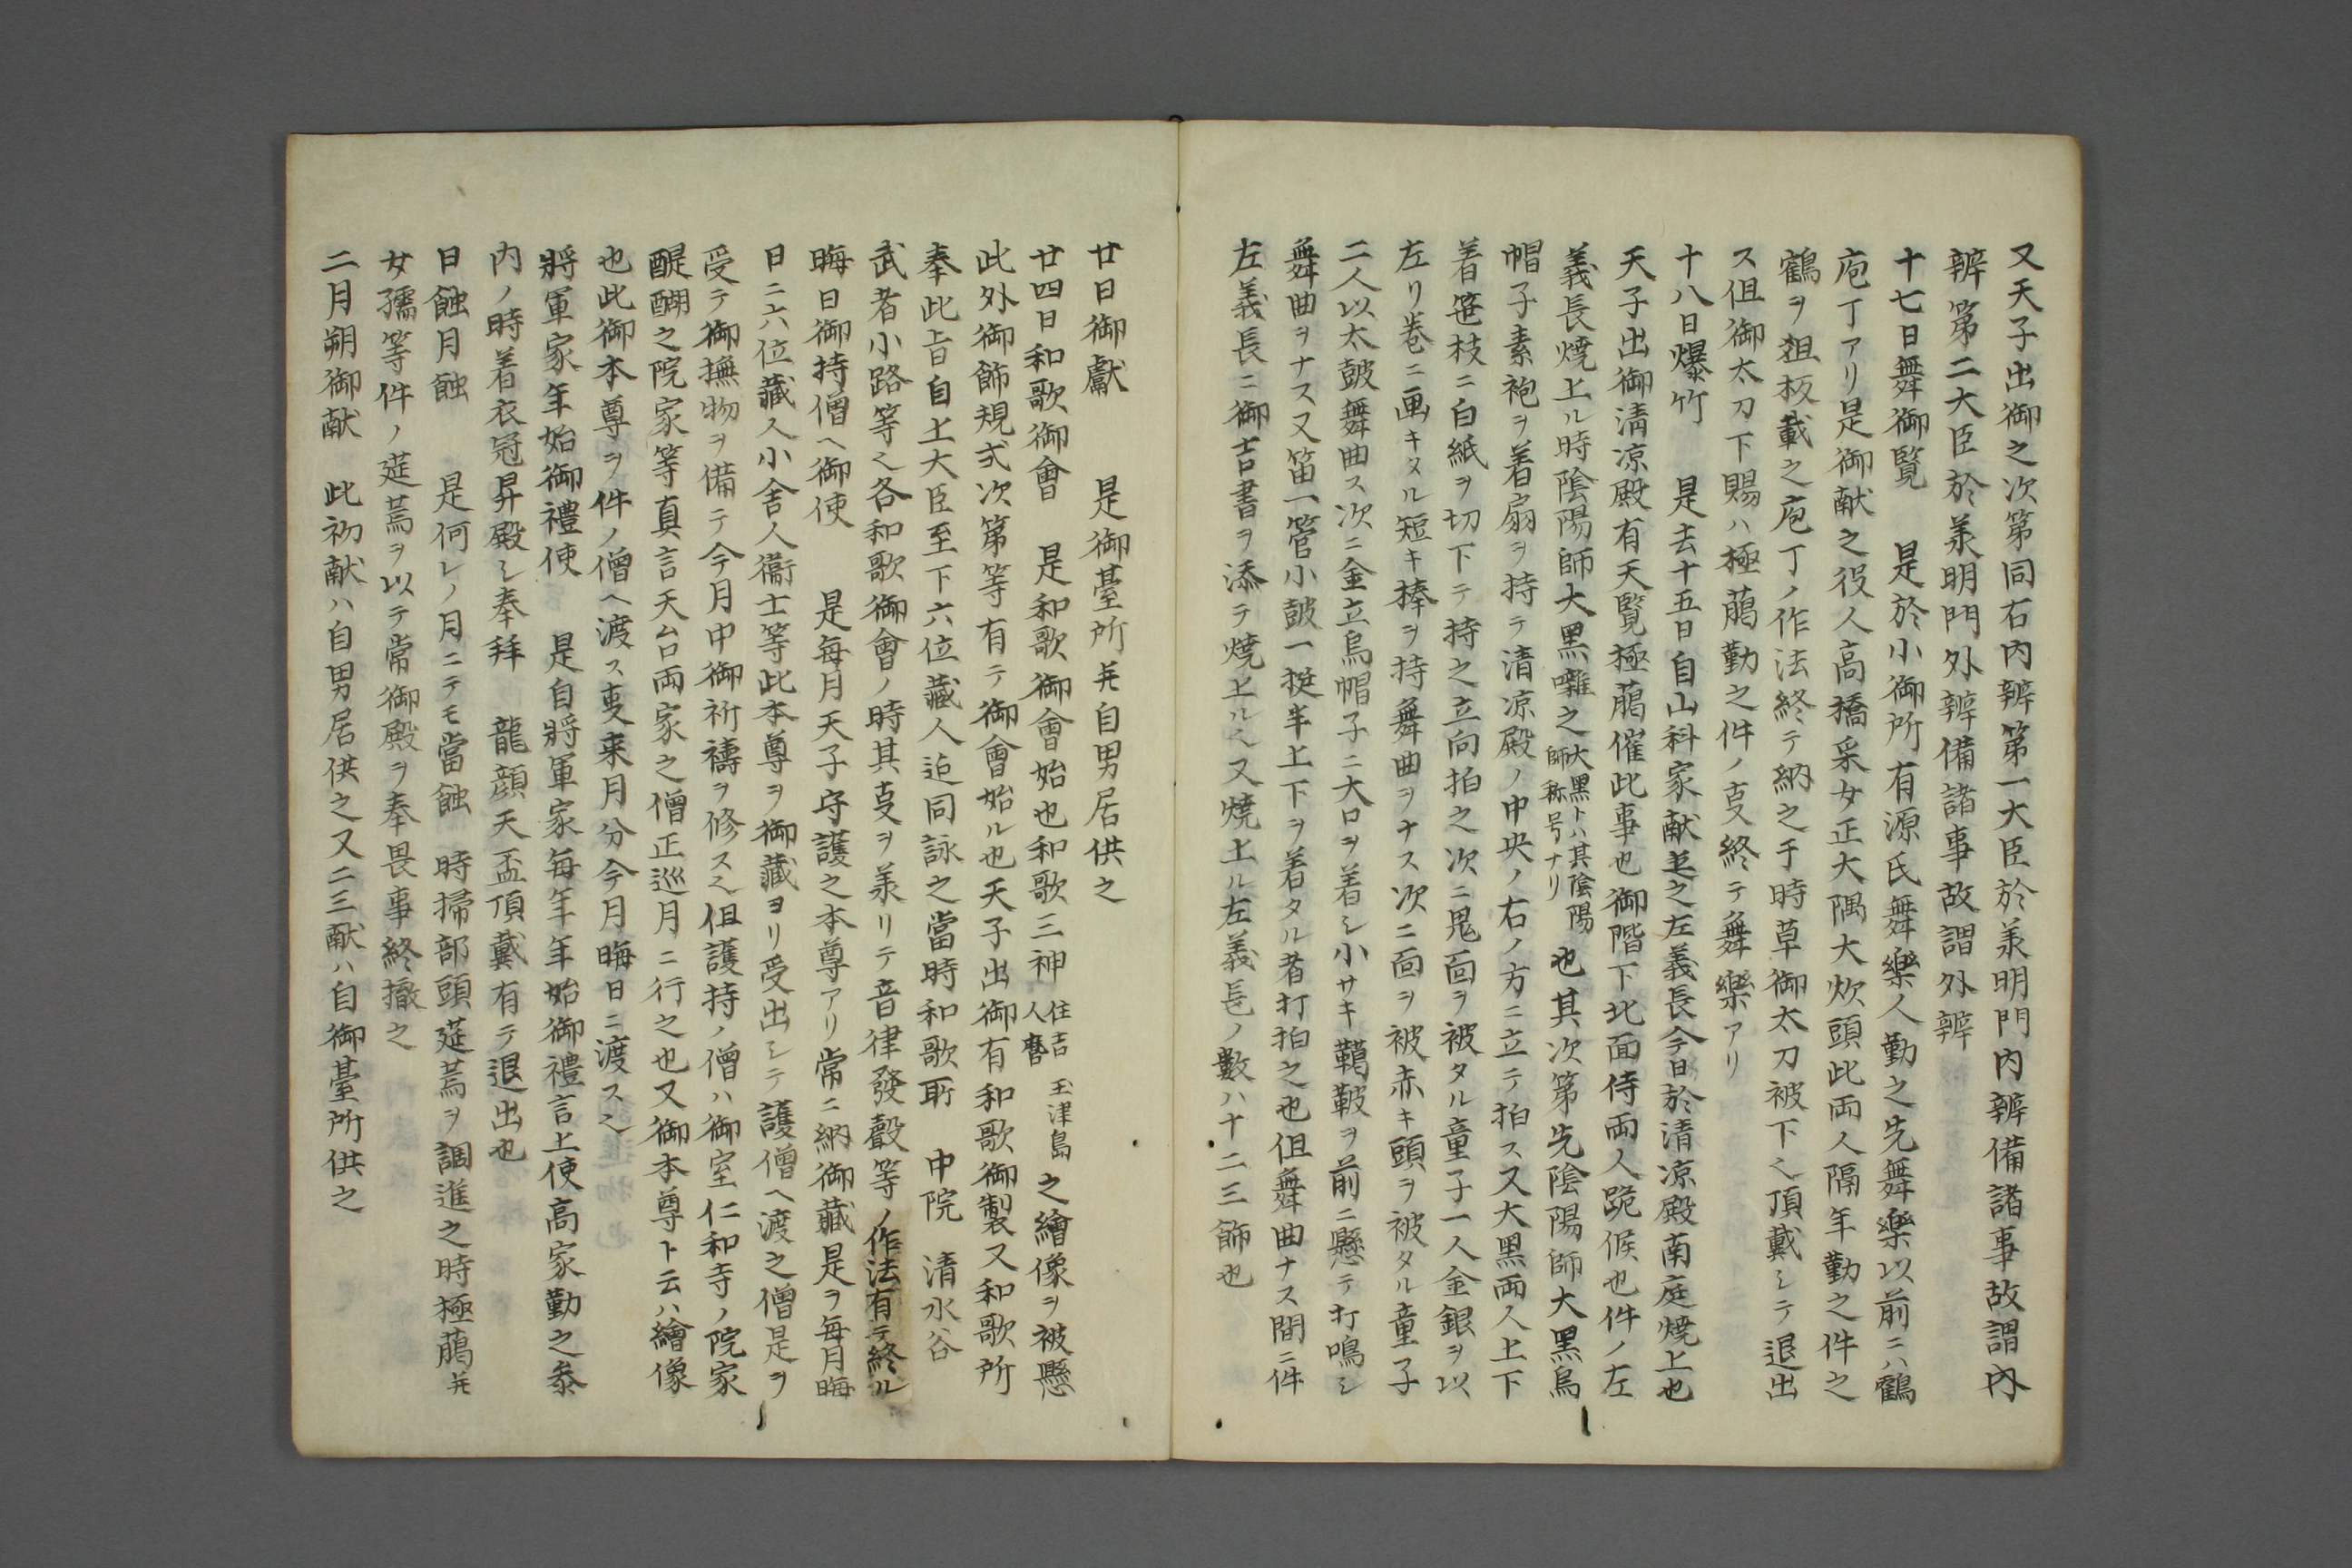 又天子出御之次第同右内辨第一大臣於羕明門内辨備諸事故謂内
辨第二大臣於羕明門外辨備諸事故謂外辨
十七日舞御覧　是於小御所有源氏舞樂人勤之先舞樂以前ニハ鶴
庖丁アリ是御献之役人高橋采女正大隅大炊頭此両人隔年勤之件之
鶴ヲ爼板載之庖丁ノ作法終テ納之于時草御太刀被下之頂戴シテ退出
ス但御太刀下賜ハ極﨟勤之件ノ㕝終テ舞樂アリ
十八日爆竹　是去十五日自山科家献之左義長今日於清凉殿南庭焼上也
天子出御清凉殿有天覧極﨟催此事也御階下北面侍両人跪候也件ノ左
義長焼上ル時陰陽師大黒囃之大黒トハ其陰陽師称号ナリ也其次第先陰陽師大黒烏
帽子素袍ヲ着扇ヲ持テ清凉殿ノ中央ノ右ノ方ニ立テ拍ス又大黒両人上下
着笹枝ニ白紙ヲ切下テ持之立向拍之次ニ鬼面ヲ被タル童子一人金銀ヲ以
左リ巻ニ画キタル短キ棒ヲ持舞曲ヲナス次ニ面ヲ被赤キ頭ヲ被タル童子
二人以太皷舞曲ス次ニ金立烏帽子ニ大口ヲ着シ小サキ鞨鞁ヲ前ニ懸テ打鳴シ
舞曲ヲナス又笛一管小皷一挺半上下ヲ着タル者打拍之也但舞曲ナス間ニ件
左義長ニ御吉書ヲ添テ焼上ル也又焼上ル左義長ノ數ハ十二三飾也
廿日御獻　是御臺所并自男居供之
廿四日和歌御會　是和歌御會始也和歌三神住吉人麿玉津島之繪像ヲ被懸
此外御飾規式次第等有テ御會始ル也天子出御有和歌御製又和歌所
奉此旨自上大臣至下六位藏人迄同詠之當時和歌所　中院　清水谷
武者小路等也各和歌御會ノ時其㕝ヲ羕リテ音律發聲等ノ作法有テ終ル
晦日御持僧ヘ御使　是每月天子守護之本尊アリ常ニ納御藏是ヲ每月晦
日ニ六位藏人小舎人衞士等此本尊ヲ御藏ヨリ受出シテ護僧ヘ渡之僧是ヲ
受テ御撫物ヲ備テ今月中御祈禱ヲ修ス也但護持ノ僧ハ御室仁和寺ノ院家
醍醐之院家等真言天台両家之僧正巡月ニ行之也又御本尊ト云ハ繪像
也此御本尊ヲ件ノ僧ヘ渡ス㕝来月分今月晦日ニ渡ス也
將軍家年始御禮使　是自將軍家每年年始御禮言上使高家勤之参
内ノ時着衣冠昇殿シ奉拜　龍顔天盃頂戴有テ退出也
日蝕月蝕　是何レノ月ニテモ當蝕　時掃部頭莚薦ヲ調進之時極﨟并
女孺等件ノ莚薦ヲ以テ常御殿ヲ奉畏事終撤之
二月朔御献　此初献ハ自男居供之又二三献ハ自御臺所供之